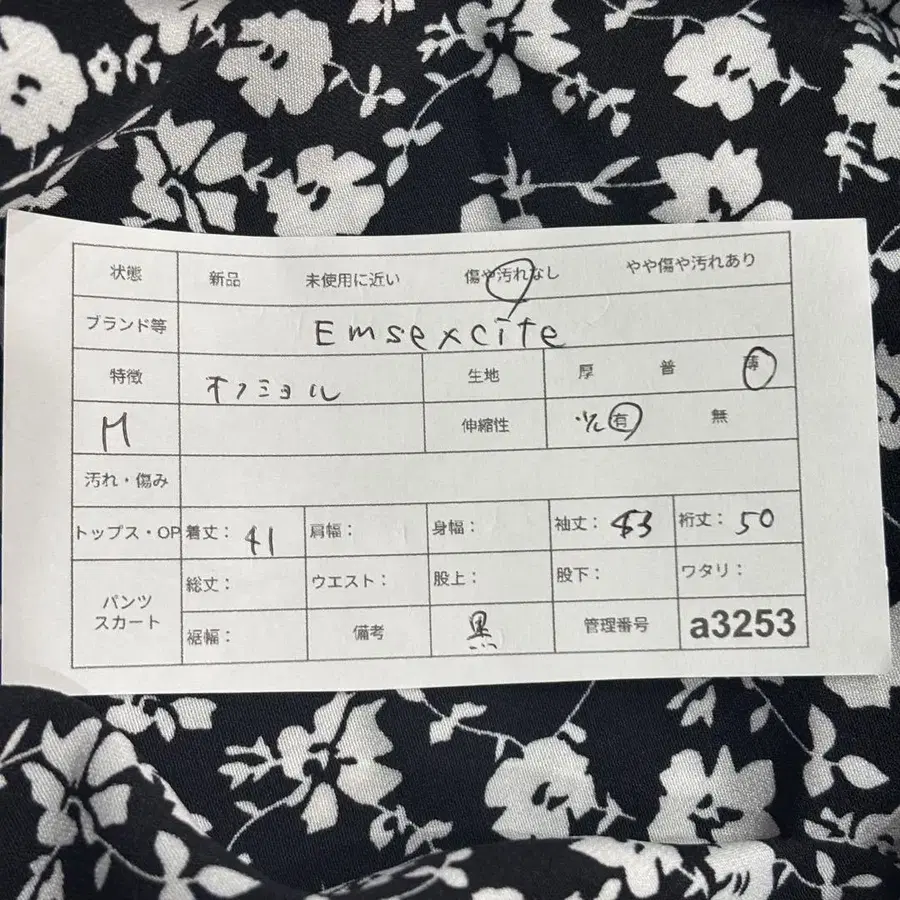 状態 新品 未使用に近い 傷や汚れなし やや傷や汚れあり
ブランド等 Emsexcite
特徴 オフショル 生地 厚 普 薄
M 伸縮性 有 無
汚れ・傷み
トップス・OP 着丈： 41 肩幅： 身幅： 袖丈： 53 裄丈： 50
パンツ
スカート
総丈： ウエスト： 股上： 股下： ワタリ：
裾幅： 備考 黒 管理番号 a3253